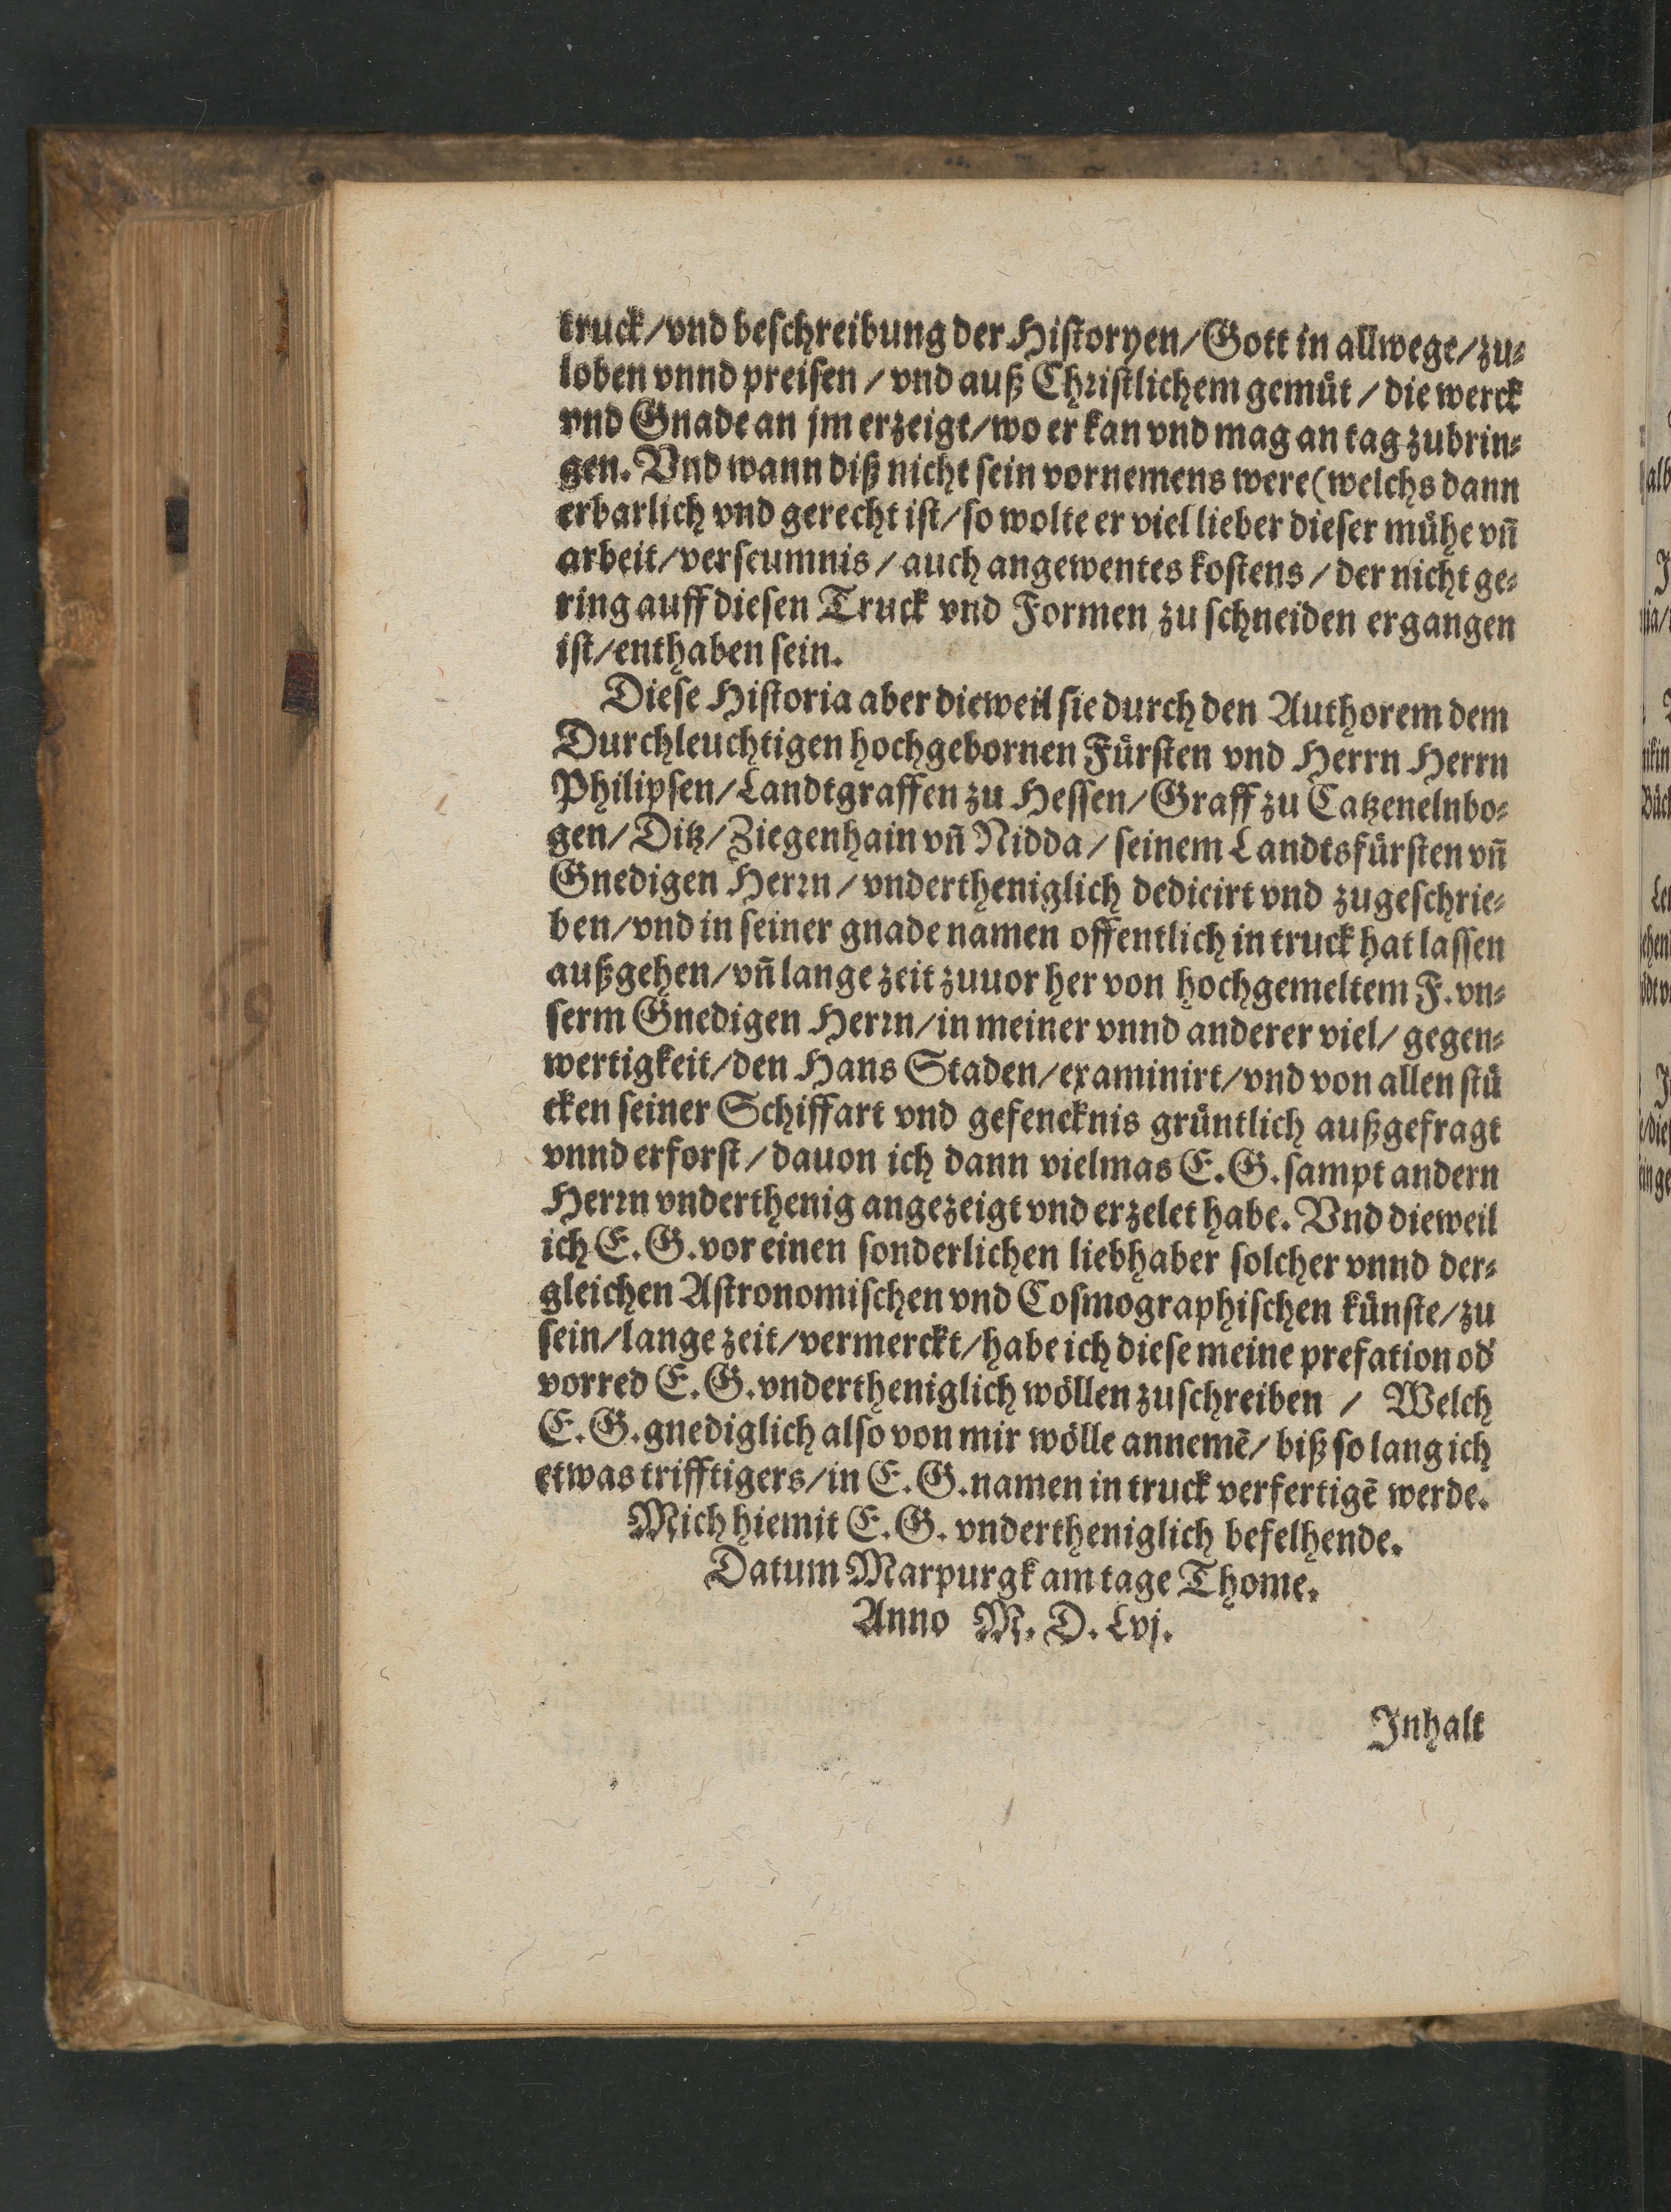 truck/vnd beschreibung der Historyen/Gott in allwege/zu-
loben vnnd preisen/vnd auß Christlichem gemüt/die werck
vnd Gnade an jm erzeigt/wo er kan vnd mag an tag zubrin-
gen. Vnd wann diß nicht sein vornemens were (welchs dann
erbarlich vnd gerecht ist/so wolte er viel lieber dieser mühe vñ
arbeit/verseumnis/auch angewentes kostens/der nicht ge-
ring auff diesen Truck vnd Formen zu schneiden ergangen
ist/enthaben sein.
Diese Historia aber dieweil sie durch den Authorem dem
Durchleuchtigen hochgebornen Fürsten vnd Herrn Herrn
Philipsen/Landtgraffen zu Hessen/Graff zu Catzenelnbo-
gen/Ditz/Ziegenhain vñ Nidda/seinem Landtsfürsten vñ
Gnedigen Herrn/vndertheniglich dedicirt vnd zugeschrie-
ben/vnd in seiner gnade namen offentlich in truck hat lassen
außgehen/vñ lange zeit zuuor her von hochgemeltem F. vn-
serm Gnedigen Herrn/in meiner vnnd anderer viel/gegen-
wertigkeit/den Hans Staden/examinirt/vnd von allen stü
cken seiner Schiffart vnd gefencknis grüntlich außgefragt
vnnd erforst/dauon ich dann vielmas E. G. sampt andern
Herrn vnderthenig angezeigt vnd erzelet habe. Vnd dieweil
ich E. G. vor einen sonderlichen liebhaber solcher vnnd der-
gleichen Astronomischen vnd Cosmographischen künste/zu
sein/lange zeit/vermerckt/habe ich diese meine prefation od'
vorred E. G. vndertheniglich wöllen zuschreiben / Welch
E. G. gnediglich also von mir wölle annemē/biß so lang ich
etwas trifftigers/in E. G. namen in truck verfertigē werde.
Mich hiemit E. G. vndertheniglich befelhende.
Datum Marpurgk am tage Thome.
Anno M. D. Lvj.
Inhalt